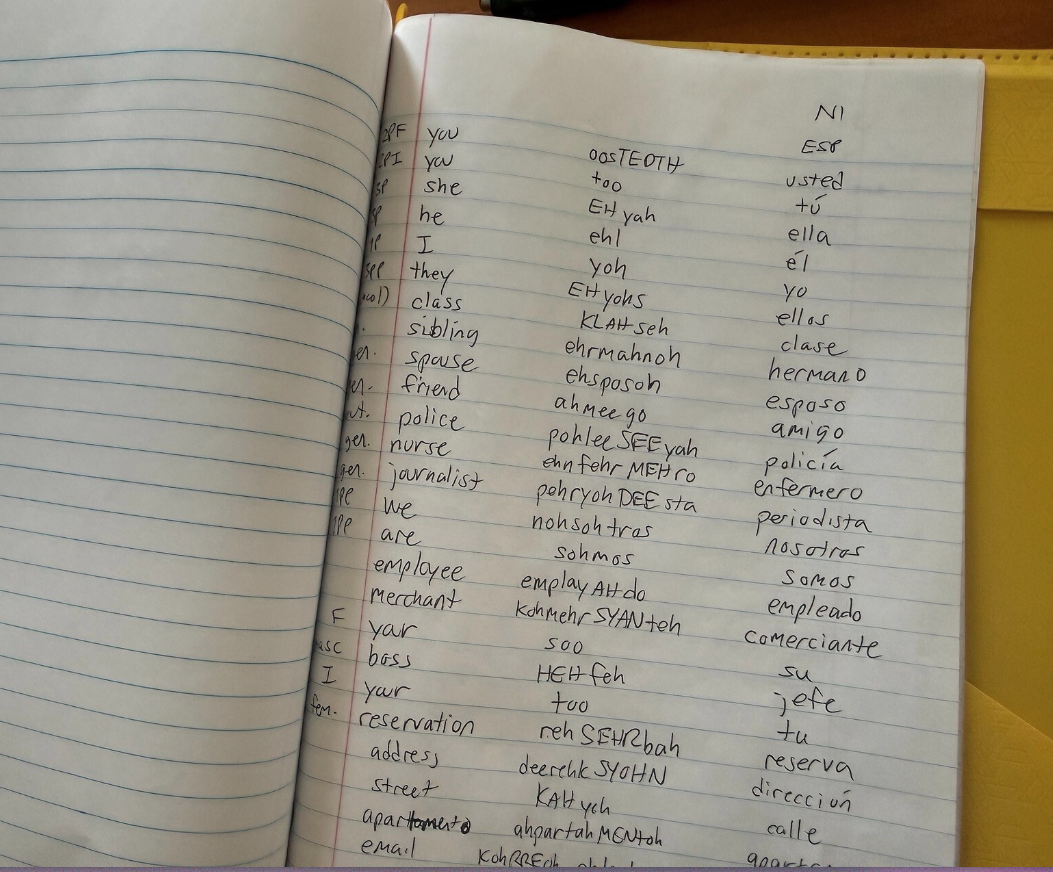 N1
ESP
you oosTEOTH usted
you too tú
she EHyah ella
he ehl él
I yoh yo
they EHyohs ellos
class KLAHseh clase
sibling ehrmahnoh hermano
spouse ehsposoh esposo
friend ahmeego amigo
police pohleeSEEyah policía
ger. nurse ehnfehrMEHro enfermero
ger. journalist pehryohDEEsta periodista
we nohsohtros nosotros
are sohmos somos
employee employAHdo empleado
merchant KohmehrSYANteh comerciante
F your soo su
boss HEHfeh jefe
I your too tu
fem. reservation rehSEHRbah reserva
address deerehkSYOHN dirección
street KAHyeh calle
ahpartahMENtoh
email